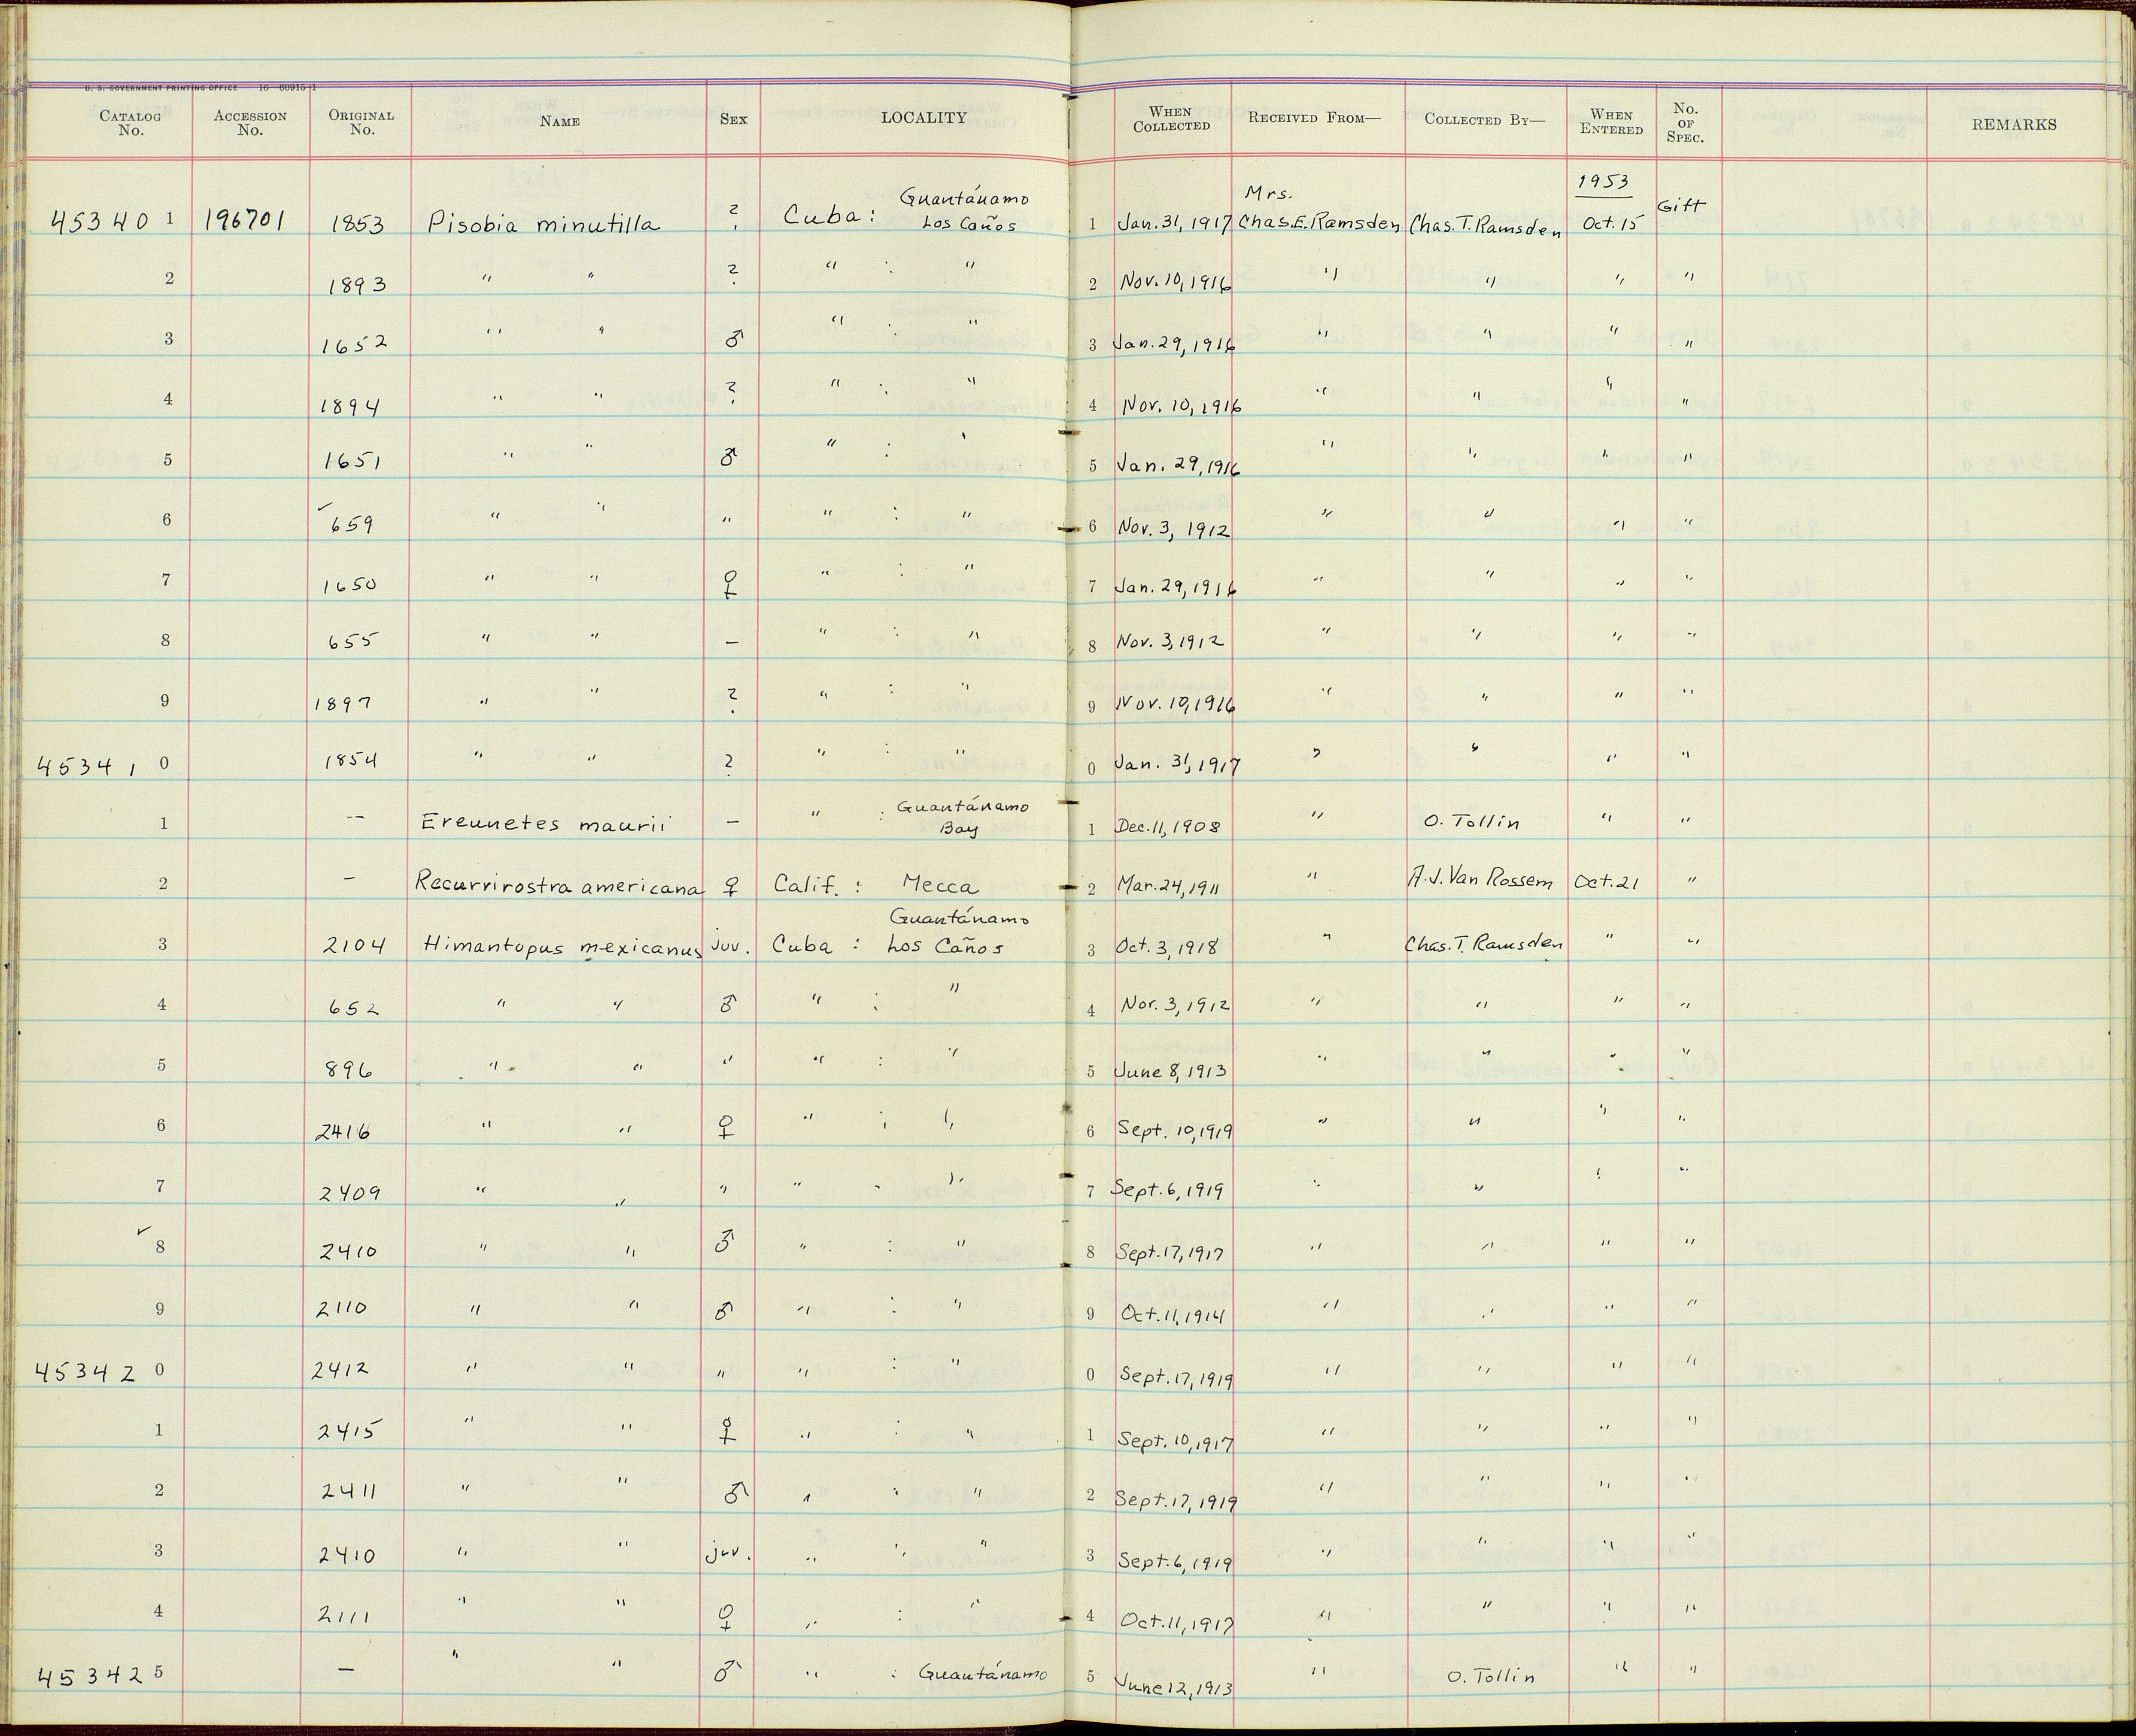 U. S. GOVERNMENT PRINTING OFFICE 16—60915-1
CATALOG No. ACCESSION No. ORIGINAL No. NAME SEX LOCALITY WHEN COLLECTED RECEIVED FROM— COLLECTED BY— WHEN ENTERED No. OF SPEC. REMARKS
45340 1 196701 1853 Pisobia minutilla ? Cuba : Guantánamo Los Caños 1 Jan. 31, 1917 Mrs. Chas. E. Ramsden Chas. T. Ramsden 1953 Oct. 15 Gift
2 1893 " " ? " : " 2 Nov. 10, 1916 " " " "
3 1652 " " ♂ " : " 3 Jan. 29, 1916 " " " "
4 1894 " " ? " : " 4 Nov. 10, 1916 " " " "
5 1651 " " ♂ " : " 5 Jan. 29, 1916 " " " "
6 ✓659 " " " " : " 6 Nov. 3, 1912 " " " "
7 1650 " " ♀ " : " 7 Jan. 29, 1916 " " " "
8 655 " " — " : " 8 Nov. 3, 1912 " " " "
9 1897 " " ? " : " 9 Nov. 10, 1916 " " " "
45341 0 1854 " " ? " : " 0 Jan. 31, 1917 " " " "
1 -- Ereunetes maurii — " : Guantánamo Bay 1 Dec. 11, 1908 " O. Tollin " "
2 — Recurvirostra americana ♀ Calif. : Mecca 2 Mar. 24, 1911 " A. J. Van Rossem Oct. 21 "
3 2104 Himantopus mexicanus juv. Cuba : Guantánamo Los Caños 3 Oct. 3, 1918 " Chas. T. Ramsden " "
4 652 " " ♂ " : " 4 Nov. 3, 1912 " " " "
5 896 " " " " : " 5 June 8, 1913 " " " "
6 2416 " " ♀ " : " 6 Sept. 10, 1919 " " " "
7 2409 " " " " : " 7 Sept. 6, 1919 " " " "
✓ 8 2410 " " ♂ " : " 8 Sept. 17, 1917 " " " "
9 2110 " " ♂ " : " 9 Oct. 11, 1914 " " " "
45342 0 2412 " " " " : " 0 Sept. 17, 1919 " " " "
1 2415 " " ♀ " : " 1 Sept. 10, 1917 " " " "
2 2411 " " ♂ " : " 2 Sept. 17, 1919 " " " "
3 2410 " " juv. " : " 3 Sept. 6, 1919 " " " "
4 2111 " " ♀ " : " 4 Oct. 11, 1917 " " " "
45342 5 — " " ♂ " : Guantánamo 5 June 12, 1913 " O. Tollin " "